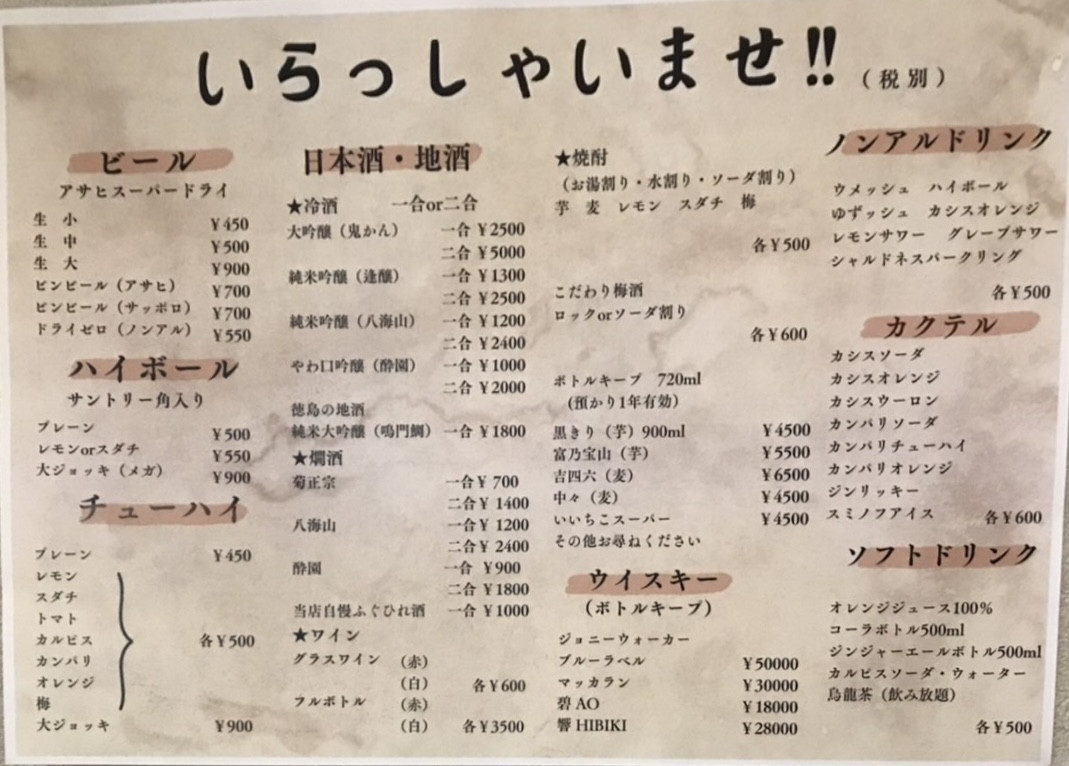 いらっしゃいませ!!（税別）
ビール
アサヒスーパードライ
生 小 ¥450
生 中 ¥500
生 大 ¥900
ビンビール（アサヒ） ¥700
ビンビール（サッポロ） ¥700
ドライゼロ（ノンアル） ¥550
ハイボール
サントリー角入り
プレーン ¥500
レモンorスダチ ¥550
大ジョッキ（メガ） ¥900
チューハイ
プレーン ¥450
レモン
スダチ
トマト
カルピス 各¥500
カンパリ
オレンジ
梅
大ジョッキ ¥900
日本酒・地酒
★冷酒 一合or二合
大吟醸（鬼かん） 一合 ¥2500
二合 ¥5000
純米吟醸（逢醸） 一合 ¥1300
二合 ¥2500
純米吟醸（八海山） 一合 ¥1200
二合 ¥2400
やわ口吟醸（酔園） 一合 ¥1000
二合 ¥2000
徳島の地酒
純米大吟醸（鳴門鯛） 一合 ¥1800
★燗酒
菊正宗 一合¥ 700
二合¥ 1400
八海山 一合¥ 1200
二合¥ 2400
酔園 一合 ¥900
二合 ¥1800
当店自慢ふぐひれ酒 一合 ¥1000
★ワイン
グラスワイン （赤）
（白） 各¥600
フルボトル （赤）
（白） 各¥3500
★焼酎
（お湯割り・水割り・ソーダ割り）
芋 麦 レモン スダチ 梅
各¥500
こだわり梅酒
ロックorソーダ割り
各¥600
ボトルキープ 720ml
（預かり1年有効）
黒きり（芋）900ml ¥4500
富乃宝山（芋） ¥5500
吉四六（麦） ¥6500
中々（麦） ¥4500
いいちこスーパー ¥4500
その他お尋ねください
ウイスキー
（ボトルキープ）
ジョニーウォーカー
ブルーラベル ¥50000
マッカラン ¥30000
碧 AO ¥18000
響 HIBIKI ¥28000
ノンアルドリンク
ウメッシュ ハイボール
ゆずッシュ カシスオレンジ
レモンサワー グレープサワー
シャルドネスパークリング
各¥500
カクテル
カシスソーダ
カシスオレンジ
カシスウーロン
カンパリソーダ
カンパリチューハイ
カンパリオレンジ
ジンリッキー
スミノフアイス 各¥600
ソフトドリンク
オレンジジュース100%
コーラボトル500ml
ジンジャーエールボトル500ml
カルピスソーダ・ウォーター
烏龍茶（飲み放題）
各¥500